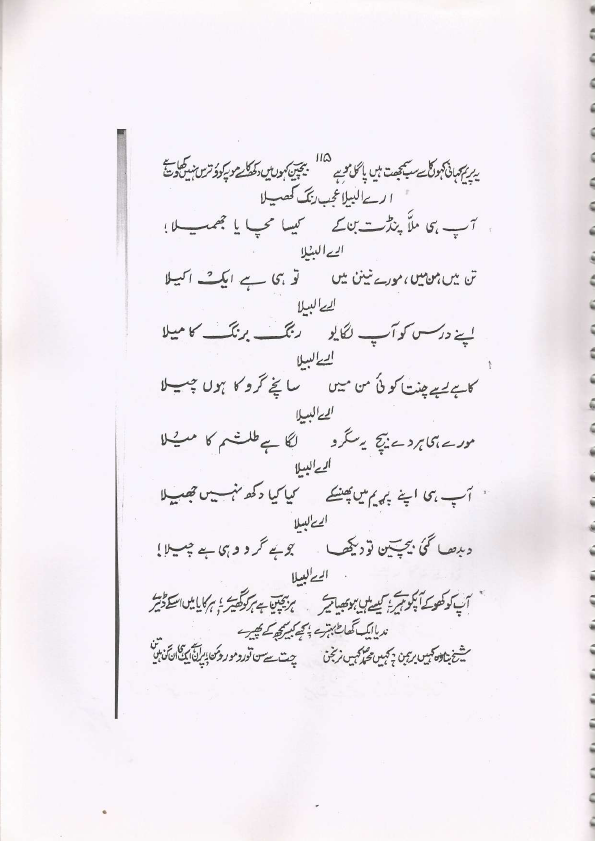 ۱۱۵
یہ پریم کہانی کہوں کا سے سب سمجھت ہیں پاگل موہے بیچین کہوں میں دکھ کا سے موپہ کوؤ ترس نہیں کھاوت ہے
ارے البیلا عجب رنگ کھیلا
آپ ہی ملّا پنڈت بن کے کیسا مچایا جھمیلا!
ارے البیلا
تن میں، من میں، مورے نینن میں تو ہی ہے ایک اکیلا
ارے البیلا
اپنے درس کو آپ لگایو رنگ برنگ کا میلا
ارے البیلا
کاہے رہے چنتا کوئی من میں سانچے گرو کا ہوں چیلا
ارے البیلا
مورے ہی ہردے بیچ یہ سگرو لگا ہے طلسّم کا میلا
ارے البیلا
آپ ہی اپنے پریم میں پھنسکے کیا کیا دکھ نہیں جھیلا
ارے البیلا
دبدھا گئی بیچین تو دیکھا جو ہے گرو وہی ہے چیلا!
ارے البیلا
آپ کو کھو کے آپکو ہیرے؛ کیسے ہیں ہو بھیا میرے ہر بیچین ہے ہر کو گھیرے؛ ہر کایا میں اسکے ڈیرے
ندیا ایک گھاٹ بہترے کہے کبیر سمجھ کے پھیرے
شیخ بناوہ کہیں برہمن؛ کہیں محمد کہیں نرنجن چت سے سن تورو مورو